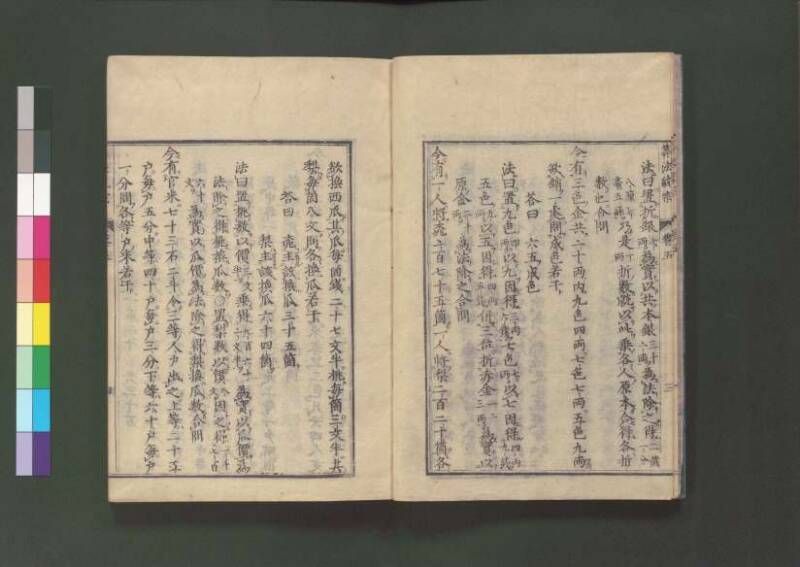 算法統宗 卷五 三
法曰置折銀為實以共本銀為法除之得
乃是折數就以此乘各人原本合得各折
數也合問
今有三色金共二十兩內九色四兩七色七兩五色九兩
欲鎔一處問成色若干
答曰 六五成色
法曰置九色四兩以九因得三兩六錢七色七兩以七因得四兩九錢
五色九兩以五因得四兩五錢併三位折赤金一十三兩為實以
原金二十兩為法除之合問
今有一人將桃一百七十五箇一人將梨二百二十箇各
欲換西瓜其瓜每箇錢二十七文半桃每箇三文半共
梨每箇八文問各換瓜若干
答曰 桃主該換瓜三十五箇
梨主該換瓜六十四箇
法曰置桃數以價三文半乘得為實以瓜價為
法除之得桃換瓜數○置梨數以價八文因之得
為實以瓜價為法除之得梨換瓜數合問
今有官米七十三石二斗令三等人戶出之上等二十五
戶每戶五分中等四十戶每戶三分下等六十戶每戶
一分問各等戶米若干